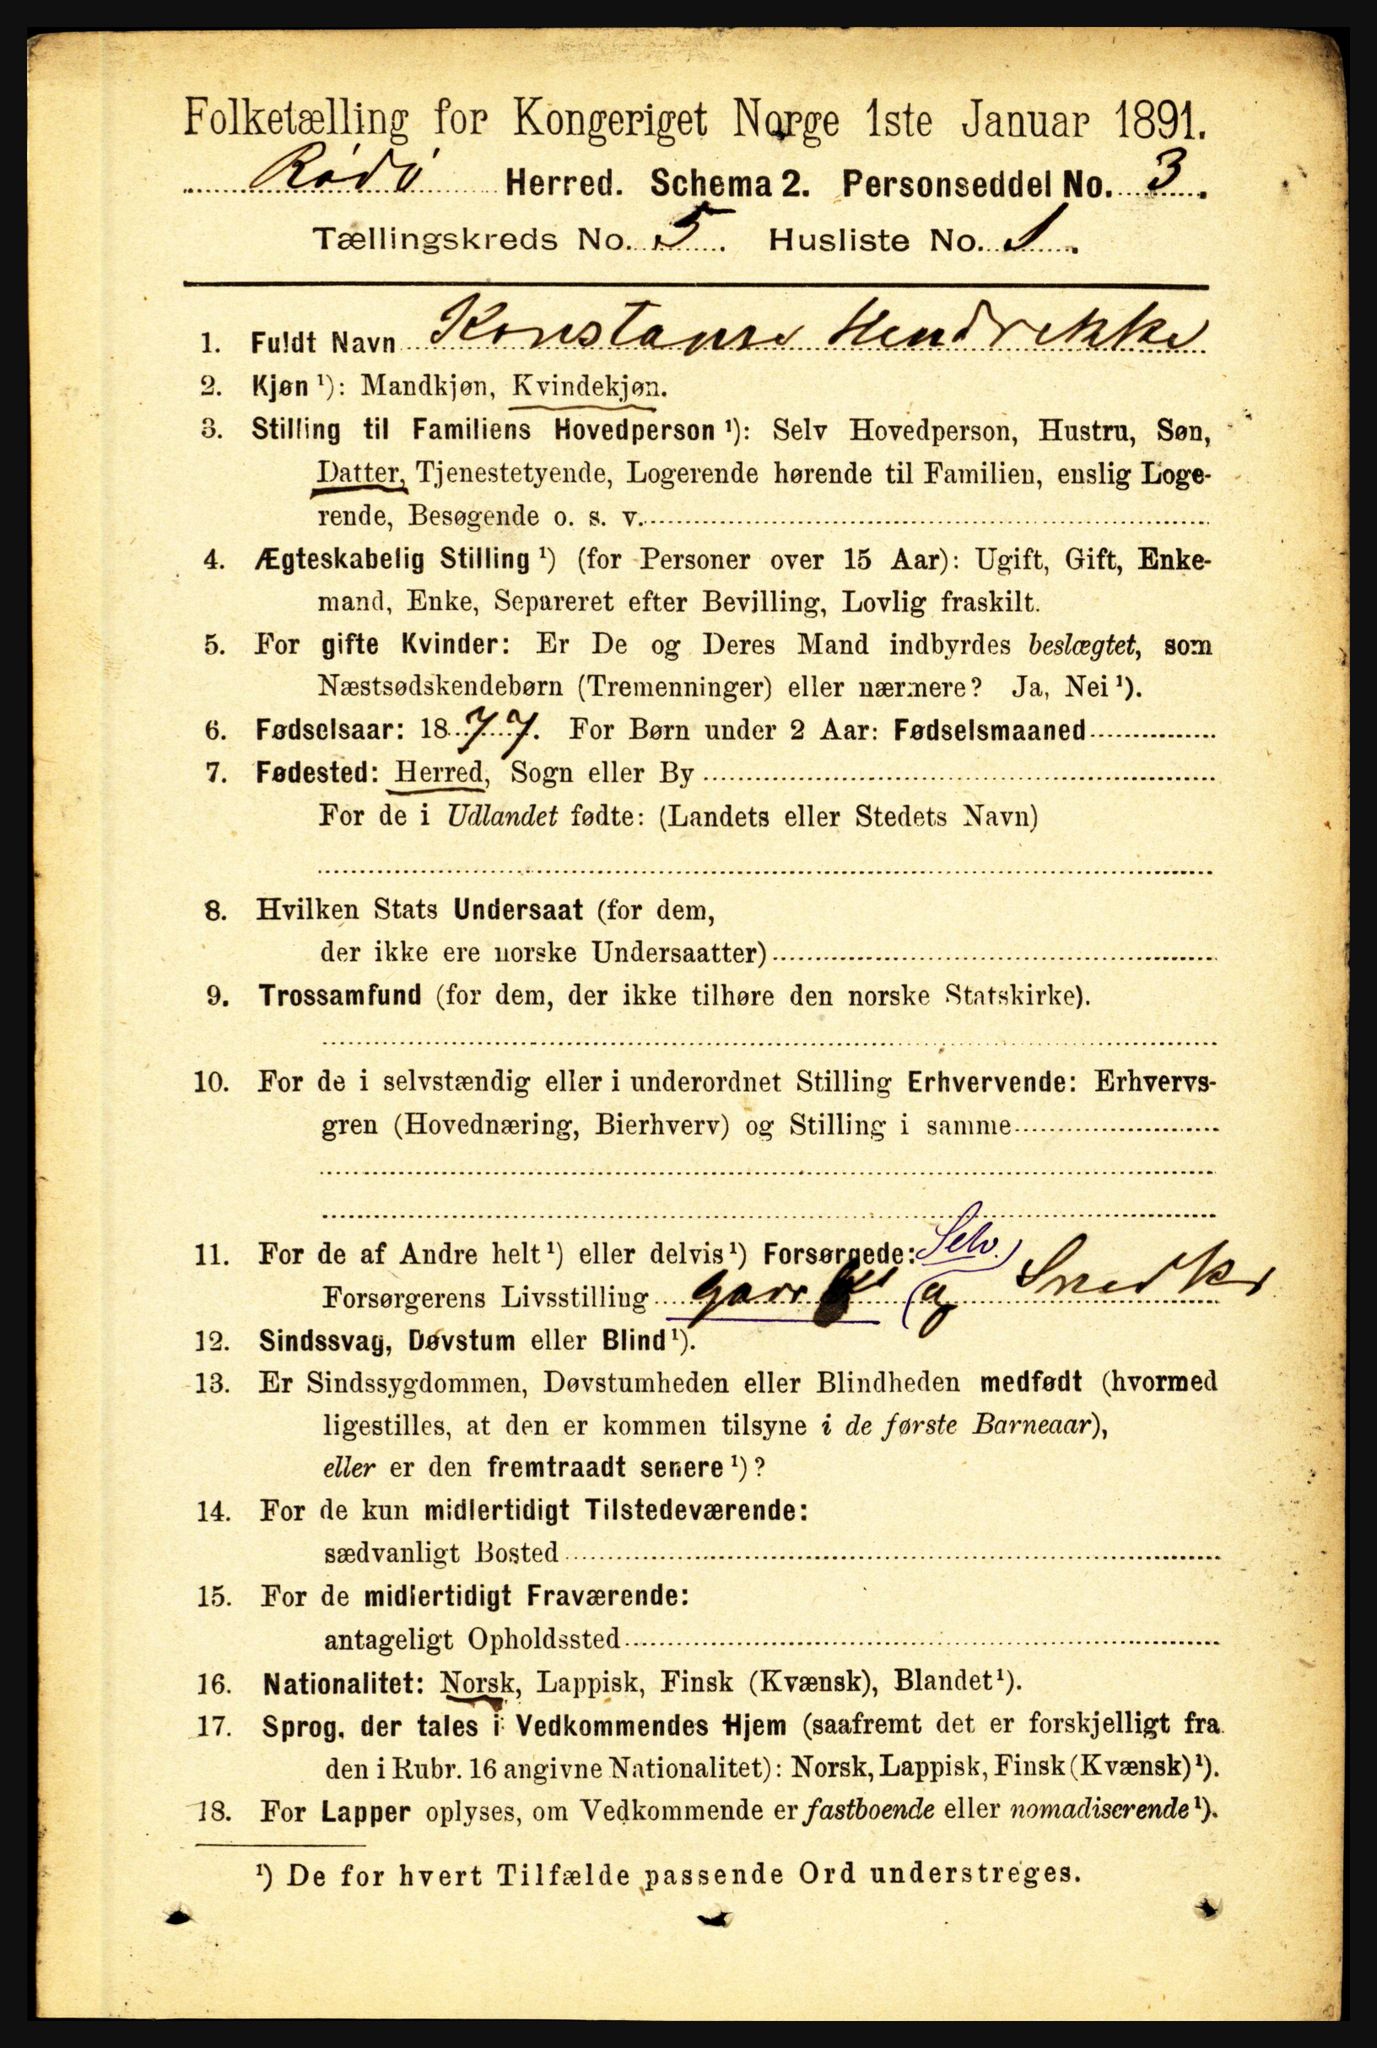 Folketælling for Kongeriget Norge 1ste Januar 1891.
Rödö Herred. Schema 2. Personseddel No. 3.
Tællingskreds No. 5. Husliste No. 1.
1. Fuldt Navn Konstanse Hendrikke
2. Kjøn ¹): Mandkjøn, Kvindekjøn.
3. Stilling til Familiens Hovedperson ¹): Selv Hovedperson, Hustru, Søn,
Datter, Tjenestetyende, Logerende hørende til Familien, enslig Loge-
rende, Besøgende o. s. v.
4. Ægteskabelig Stilling ¹) (for Personer over 15 Aar): Ugift, Gift, Enke-
mand, Enke, Separeret efter Bevilling, Lovlig fraskilt.
5. For gifte Kvinder: Er De og Deres Mand indbyrdes beslægtet, som
Næstsødskendebørn (Tremenninger) eller nærmere? Ja, Nei ¹).
6. Fødselsaar: 1877. For Børn under 2 Aar: Fødselsmaaned
7. Fødested: Herred, Sogn eller By
For de i Udlandet fødte: (Landets eller Stedets Navn)
8. Hvilken Stats Undersaat (for dem,
der ikke ere norske Undersaatter)
9. Trossamfund (for dem, der ikke tilhøre den norske Statskirke).
10. For de i selvstændig eller i underordnet Stilling Erhvervende: Erhvervs-
gren (Hovednæring, Bierhverv) og Stilling i samme
11. For de af Andre helt ¹) eller delvis ¹) Forsørgede: Selv.
Forsørgerens Livsstilling og Snedker
12. Sindssvag, Døvstum eller Blind ¹).
13. Er Sindssygdommen, Døvstumheden eller Blindheden medfødt (hvormed
ligestilles, at den er kommen tilsyne i de første Barneaar),
eller er den fremtraadt senere ¹)?
14. For de kun midlertidigt Tilstedeværende:
sædvanligt Bosted
15. For de midlertidigt Fraværende:
antageligt Opholdssted
16. Nationalitet: Norsk, Lappisk, Finsk (Kvænsk), Blandet ¹).
17. Sprog, der tales i Vedkommendes Hjem (saafremt det er forskjelligt fra
den i Rubr. 16 angivne Nationalitet): Norsk, Lappisk, Finsk (Kvænsk) ¹).
18. For Lapper oplyses, om Vedkommende er fastboende eller nomadiserende ¹).
¹) De for hvert Tilfælde passende Ord understreges.